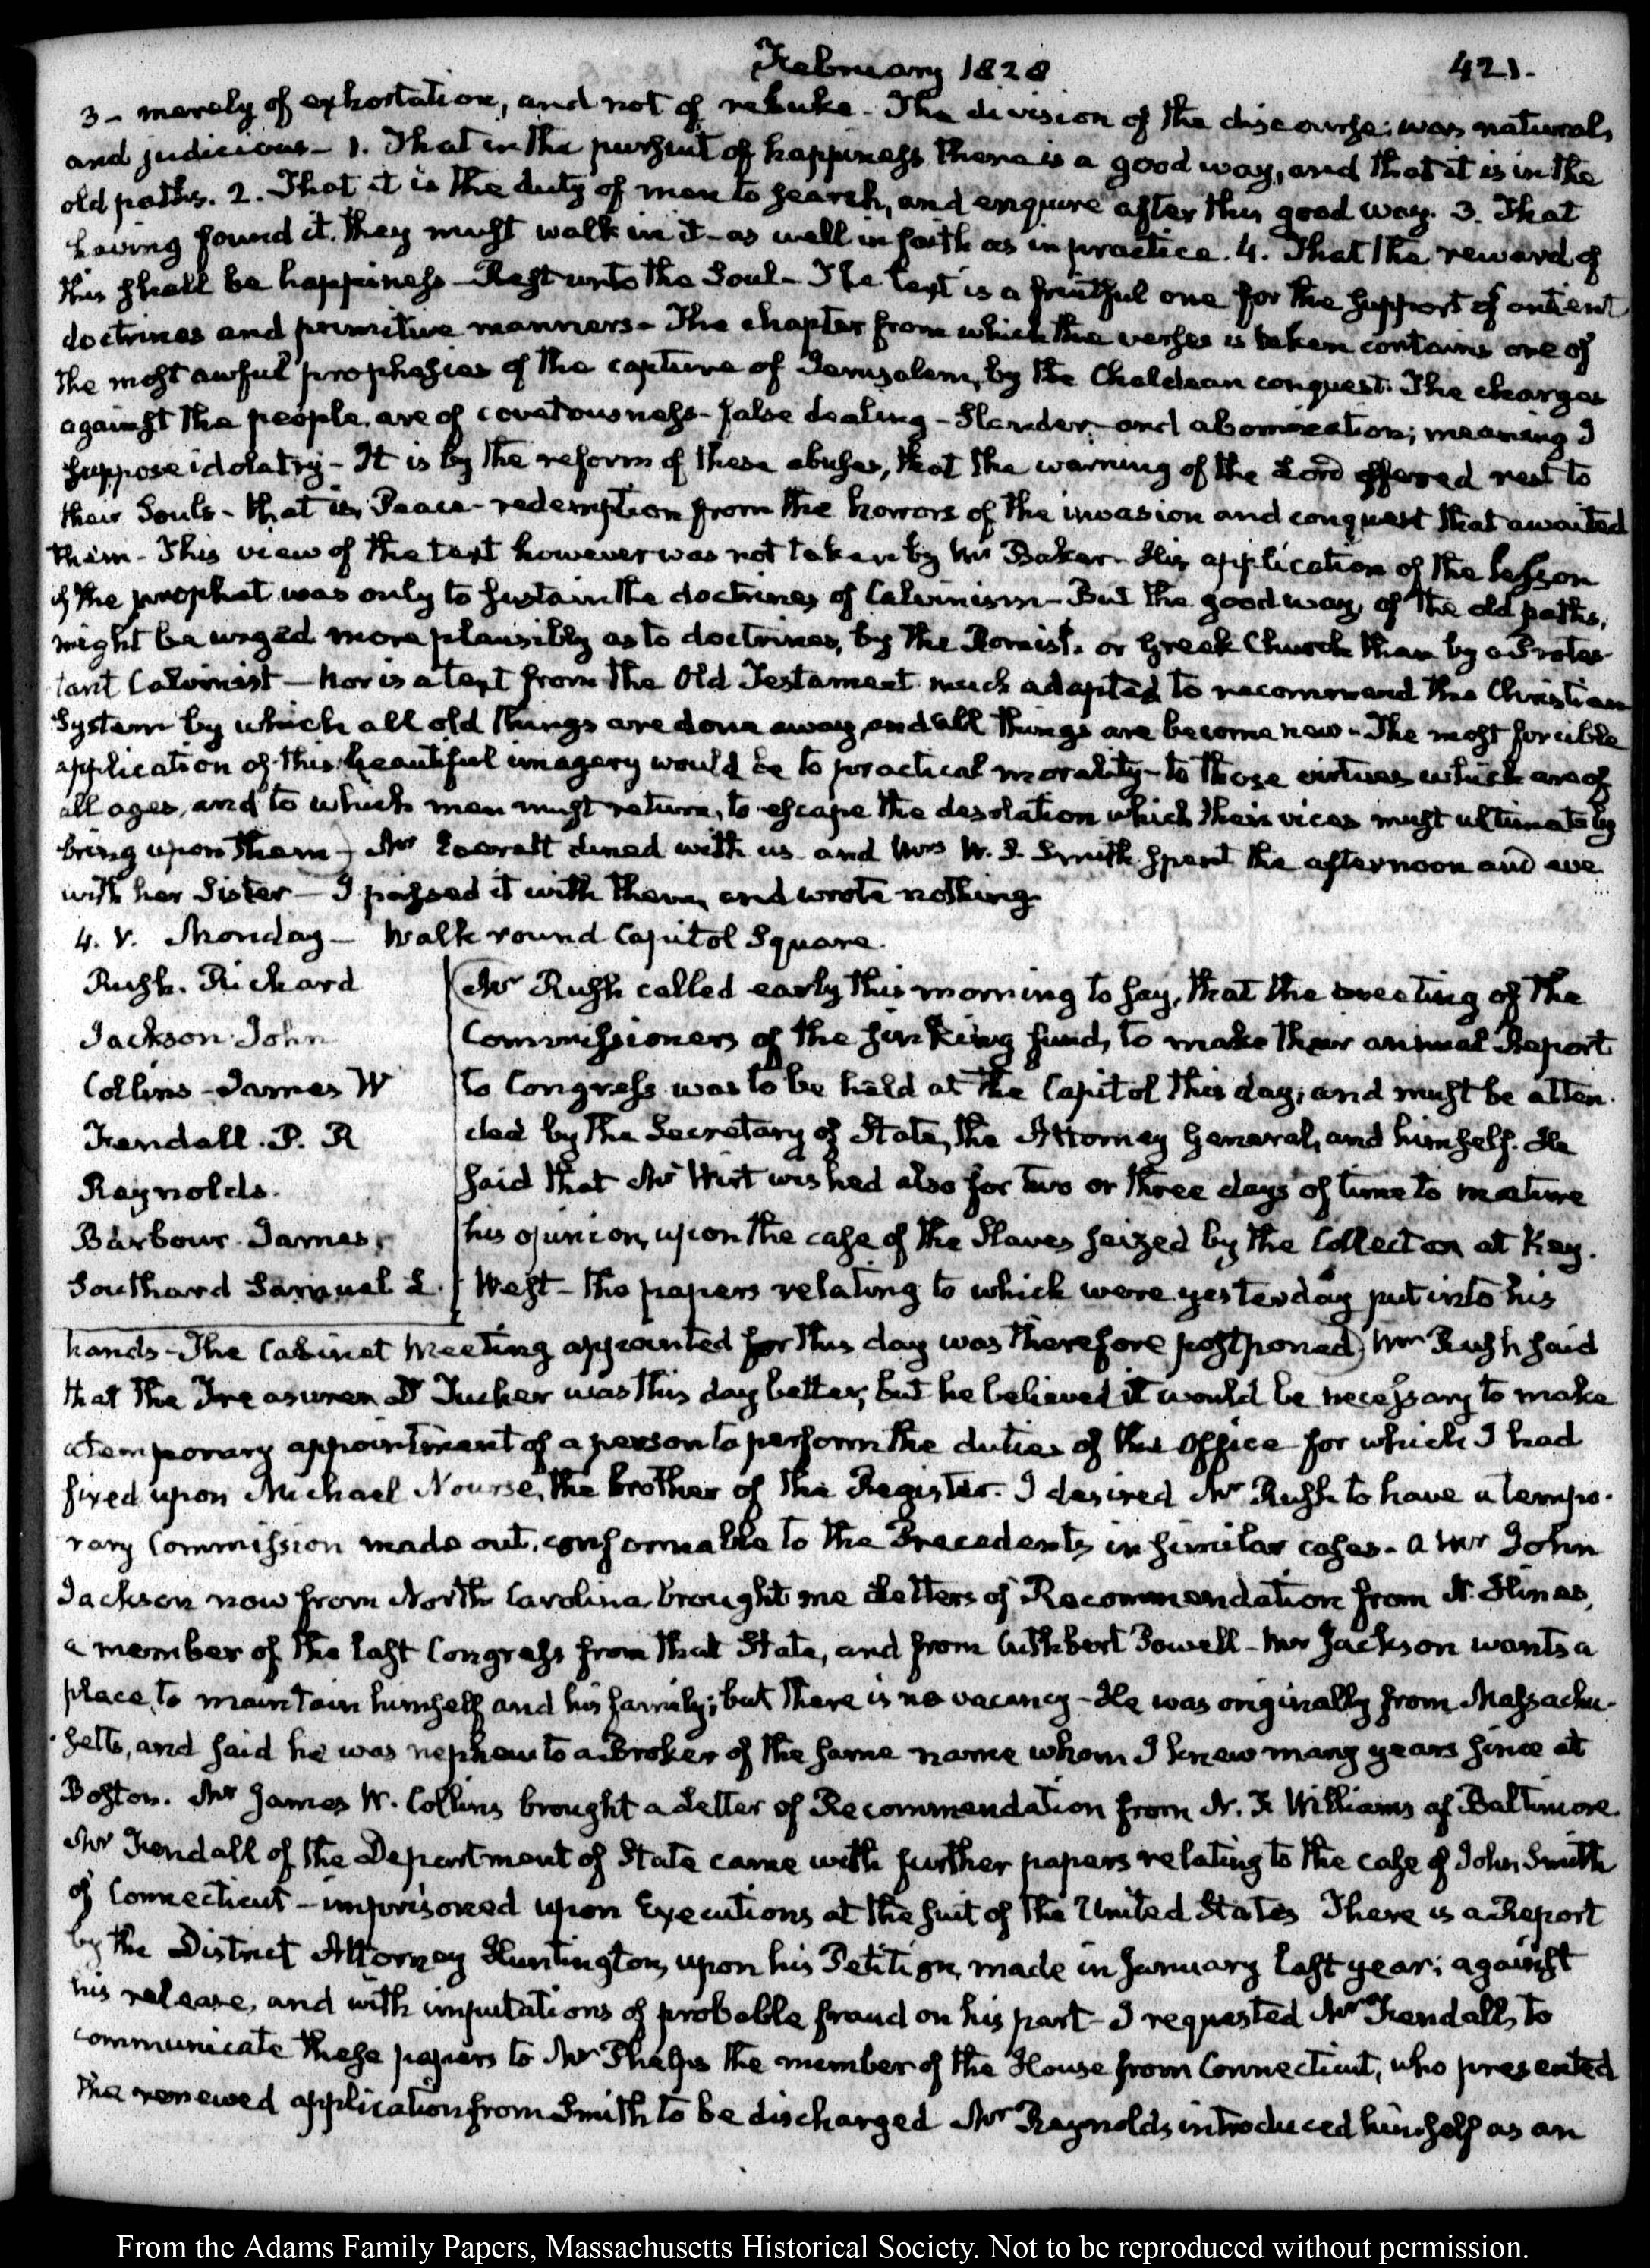 February 1828
421.
3 – merely of exhortation, and not of rebuke – The division of the discourse, was natural,
and judicious – 1. That in the pursuit of happiness there is a good way, and that it is in the
old paths. 2. That it is the duty of man to search, and enquire after this good way. 3. That
having found it, they must walk in it – as well in faith as in practice. 4. That the reward of
this shall be happiness – Rest unto the Soul – The text is a fruitful one for the support of antient
doctrines and primitive manners – The chapter from which the verse is taken contains one of
the most awful prophesies of the capture of Jerusalem, by the Chaldean conquest. The charges
against the people, are of covetousness – false dealing – Slander – and abomination; meaning I
suppose idolatry – It is by the reform of these abuses, that the warning of the Lord offered rest to
their Souls – that is, Peace – redemption from the horrors of the invasion and conquest that awaited
them – This view of the text however was not taken by Mr Baker – His application of the lesson
of the prophet was only to sustain the doctrines of Calvinism – But the good way, of the old paths,
might be urged more plausibly as to doctrines, by the Romish or Greek Church than by a Protes-
tant Calvinist – Nor is a text from the Old Testament much adapted to recommend the Christian
System by which all old things are done away, and all things are become new – The most forcible
application of this beautiful imagery would be to practical morality – to those virtues which are of
all ages, and to which men must return, to escape the desolation which their vices must ultimately
bring upon them – Mr Everett dined with us and Mrs W. S. Smith spent the afternoon and eve
with her Sister – I passed it with them, and wrote nothing.
4. V. Monday – Walk round Capitol Square.
Rush. Richard
Jackson John
Collins – James W
Kendall. P. R
Reynolds.
Barbour. James.
Southard Samuel L.
Mr Rush called early this morning to say, that the meeting of the
Commissioners of the sinking fund, to make their annual Report
to Congress was to be held at the Capitol this day, and must be atten-
ded by the Secretary of State, the Attorney General, and himself. He
said that Mr Wirt wished also for two or three days of time to mature
his opinion, upon the case of the Slaves seized by the Collector at Key.
West – the papers relating to which were yesterday put into his
hands – The Cabinet Meeting appointed for this day was therefore postponed) Mr Rush said
that the Treasurer Dr Tucker was this day better, but he believed it would be necessary to make
a temporary appointment of a person to perform the duties of the Office for which I had
fixed upon Michael Nourse, the brother of the Register. I desired Mr Rush to have a tempo-
rary Commission made out, conformable to the Precedents in similar cases – A Mr John
Jackson now from North Carolina brought me Letters of Recommendation from R. Hines,
a member of the last Congress from that State, and from Cuthbert Powell – Mr Jackson wants a
place, to maintain himself and his family; but there is no vacancy – He was originally from Massachu-
setts, and said he was nephew to a Broker of the same name whom I knew many years since at
Boston. Mr James W. Collins brought a Letter of Recommendation from N. F Williams of Baltimore
Mr Kendall of the Department of State came with further papers relating to the case of John Smith
of Connecticut – imprisoned upon Executions at the suit of the United States There is a Report
by the District Attorney Huntington, upon his Petition, made in January last year; against
his release, and with imputations of probable fraud on his part – I requested Mr Kendall, to
communicate these papers to Mr Phelps the member of the House from Connecticut, who presented
the renewed application from Smith to be discharged Mr Reynolds introduced himself as an
From the Adams Family Papers, Massachusetts Historical Society. Not to be reproduced without permission.